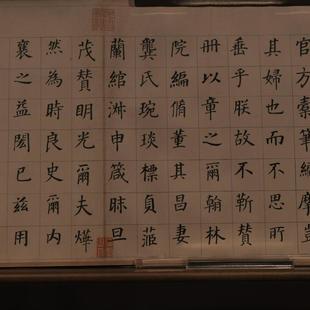 官方橐筆編摩豈
其婦也而不思所
垂乎朕故不靳贊
冊以章之爾翰林
院編脩董其昌妻
龔氏琬琰標貞茝
蘭綰淑申箴昧旦
茂贊明光爾夫燁
然為時良史爾內
襄之益閎已茲用